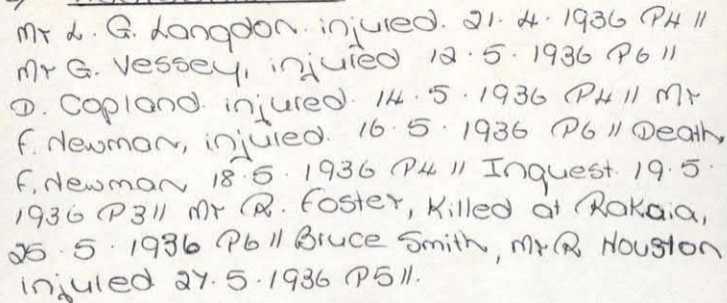 Mr L. G. Langdon. injured. 21. 4. 1936 P4 //
Mr G. Vessey, injured 12. 5. 1936 P6 //
D. Copland. injured. 14. 5. 1936 P4 // Mr
F. Newman, injured. 16. 5. 1936 P6 // Death,
F. Newman 18. 5. 1936 P4 // Inquest. 19. 5.
1936 P3 // Mr R. Foster, Killed at Rakaia,
25. 5. 1936 P6 // Bruce Smith, Mr R Houston
injured 27. 5. 1936 P5 //.